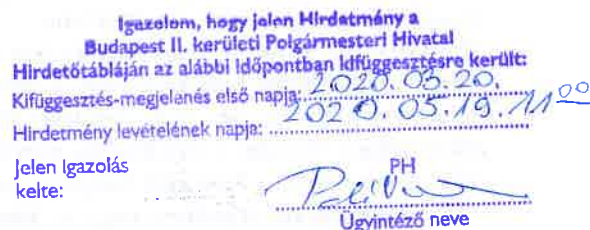 Igazolom, hogy jelen Hirdetmény a
Budapest II. kerületi Polgármesteri Hivatal
Hirdetőtábláján az alábbi időpontban kifüggesztésre került:
Kifüggesztés-megjelenés első napja: 2020. 03. 20.
Hirdetmény levételének napja: 2020. 05. 19. 11 00
Jelen Igazolás
kelte:
PH
Ügyintéző neve